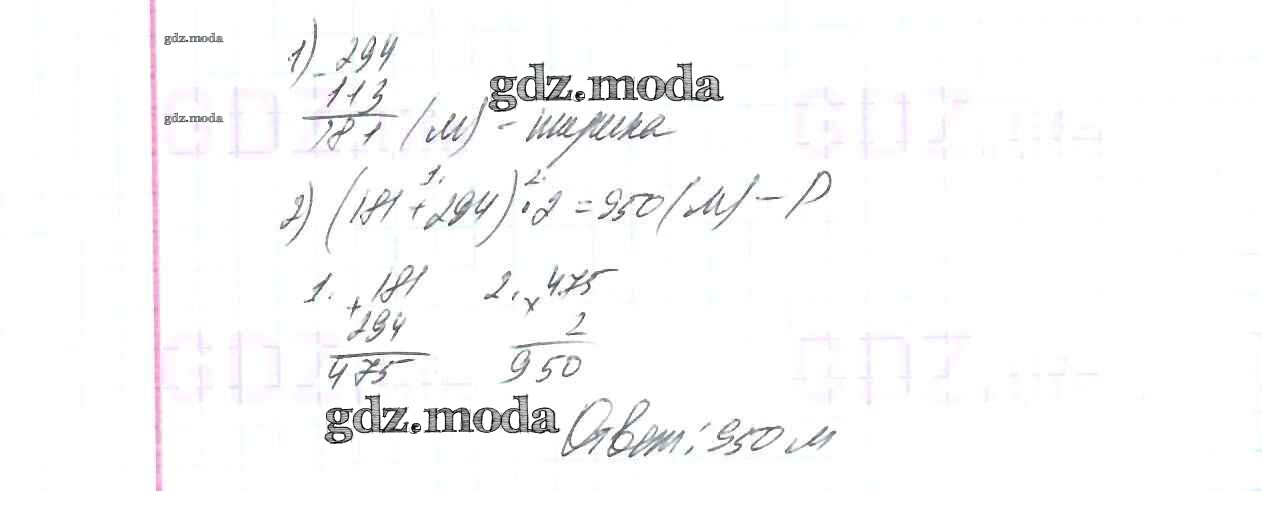 gdz.moda
1) - 294
113
181 (м) - ширина
gdz.moda
gdz.moda
1. 2.
2) (181 + 294) · 2 = 950 (м) - P
1. + 181
294
475
2. × 475
2
950
gdz.moda
Ответ: 950 м